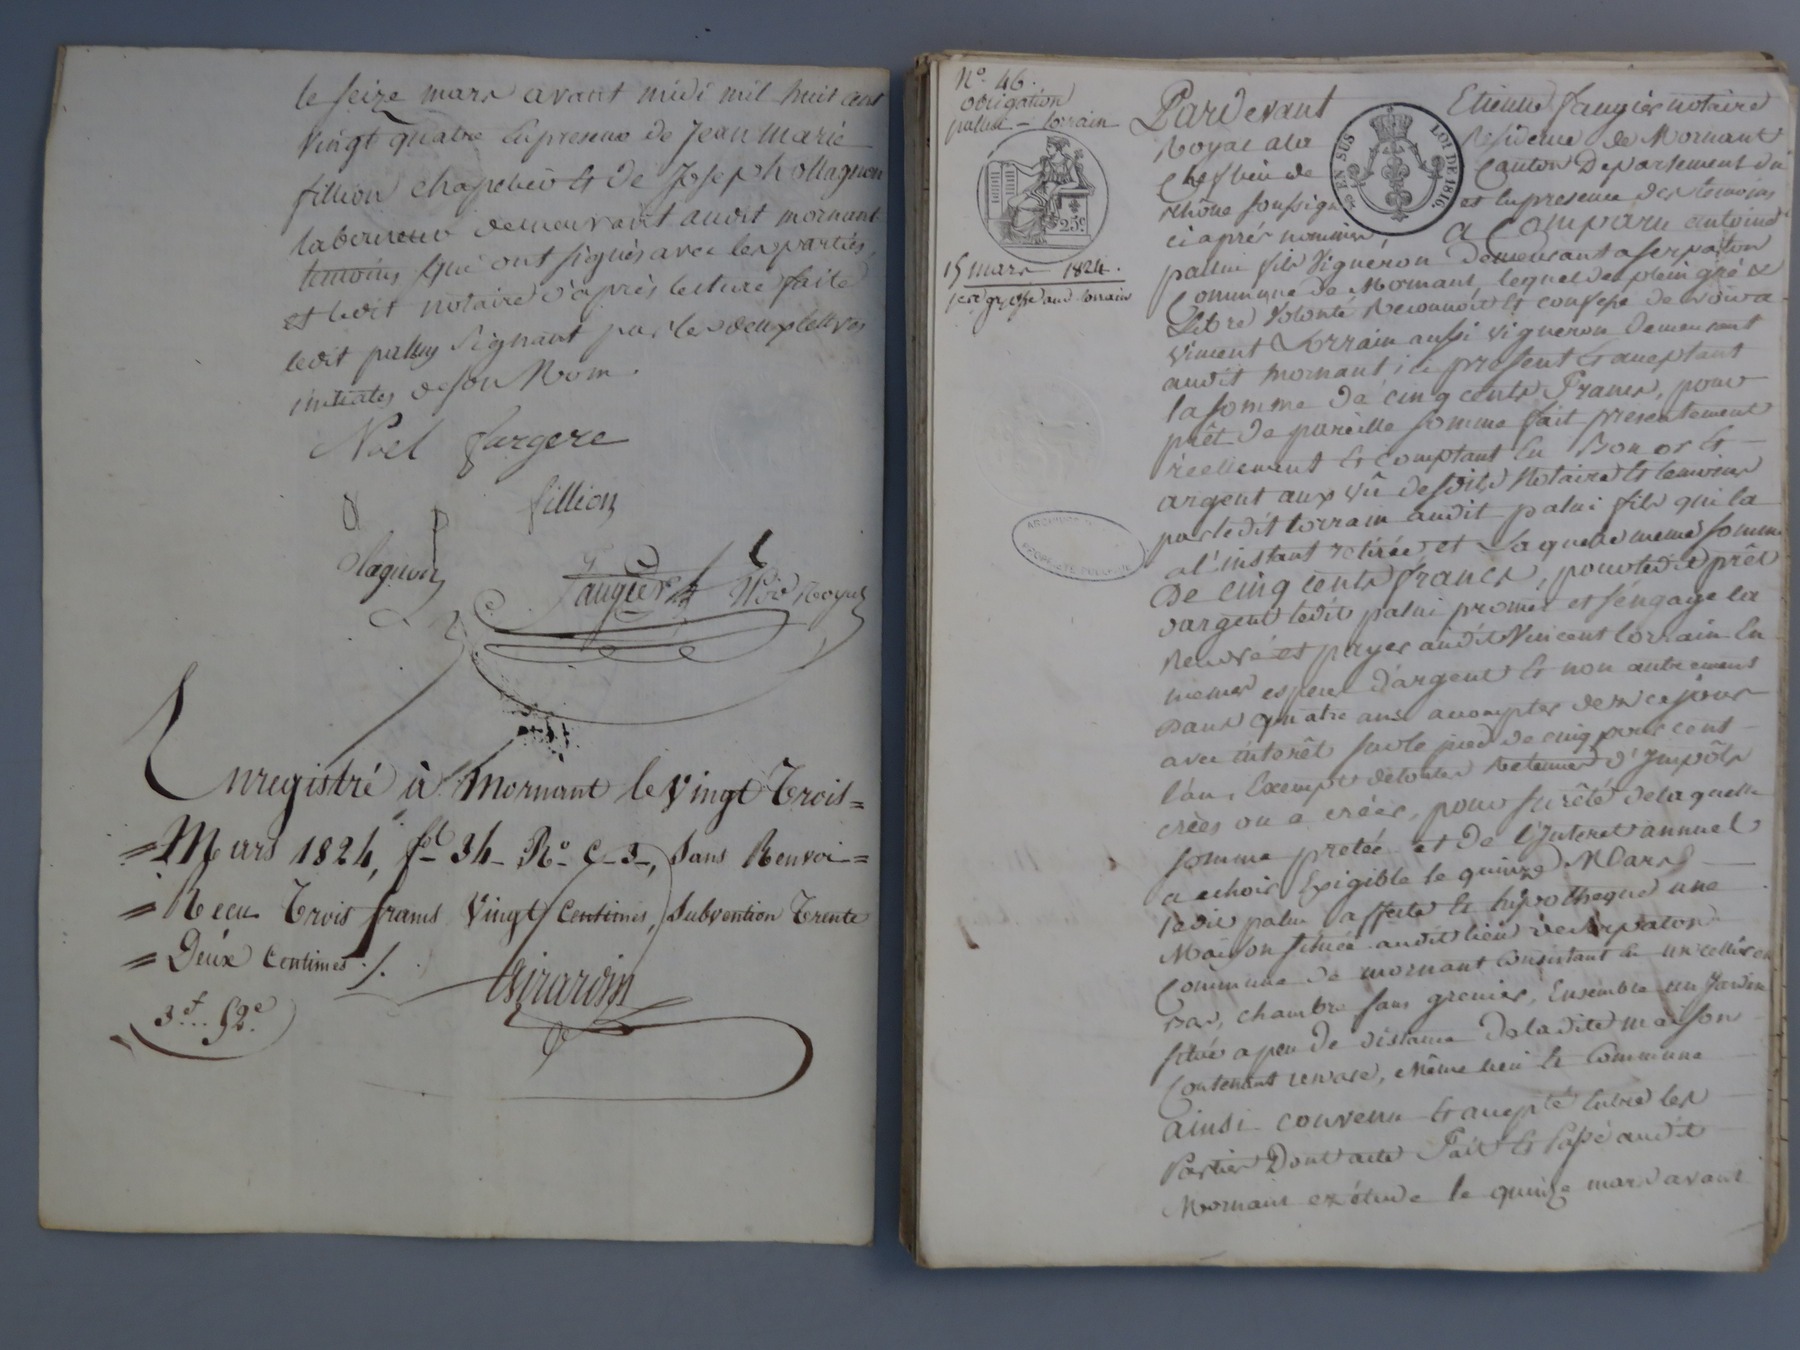 le seize mars avant midi mil huit cent
vingt quatre En presence de Jean Marie
fillion chapelier Et de Joseph ollagnon
laboureur demeurant audit mornant
temoins qui ont signés avec les parties,
et ledit notaire d'après lecture faite
ledit palluy signant par les deux lettres
initiales de son Nom.
Noel fargere
fillion
ollagnon
faugier Nre Royal
Enregistré à Mornant le Vingt Trois=
=Mars 1824, fol 34 Ro C 3, Sans Renvoi=
=Recu Trois francs Vingt Centimes, Subvention Trente
=Deux Centimes ./.
Girardin
3f.. 52c.
No. 46.
obligation
palui - lorrain
25c
15 mars 1824.
1ere grosse aud lorrain
EN SUS
LOI DE 1816
Pardevant Etienne faugier notaire
Royal a la Residence de Mornant
Chef lieu de Canton Departement du
Rhône soussigné et En presence des temoins
ci après nommés, a Comparu antoine
palui fils Vigneron demeurant a serpaton
Commune de Mornant, lequel de plein gré &
Libre Volonté Reconnoit Et confesse devoir a
Vincent Lorrain aussi Vigneron demeurant
audit mornant ici present Et aceptant
la somme de cinq cents Francs, pour
prêt de pareille somme fait presentement
réellement Et comptant En Bon or Et
argent aux vû desdits Notaire Et temoins
par ledit Lorrain audit palui fils qui la
a l'instant retirée, et Laquelle meme somme
De cinq cents francs, pour ledit prêt
d'argent ledit palui promet et s'engage la
Rendre et payer audit Vincent lorrain En
memes especes d'argent Et non autrement
Dans quatre ans acompter de ce jour
avec interêt sur le pied de cinq pour cent
l'an, Exempt de toutes Retenues d'Impôts
créés ou a créér, pour sureté de laquelle
somme pretée et de l'Interet annuel
a echoir Exigible le quinze Mars
ledit palui affecte Et hipotheque une
Maison située audit lieu de serpaton
Commune de mornant Consistant En un cellier en
bas, chambre sans grenier, Ensemble un Jardin
situé a peu de distance de ladite maison
Contenant un are, même lieu Et Commune
ainsi convenu Et accepté Entre les
Parties Dont acte Fait Et Passé audit
Mornant en étude le quinze mars avant